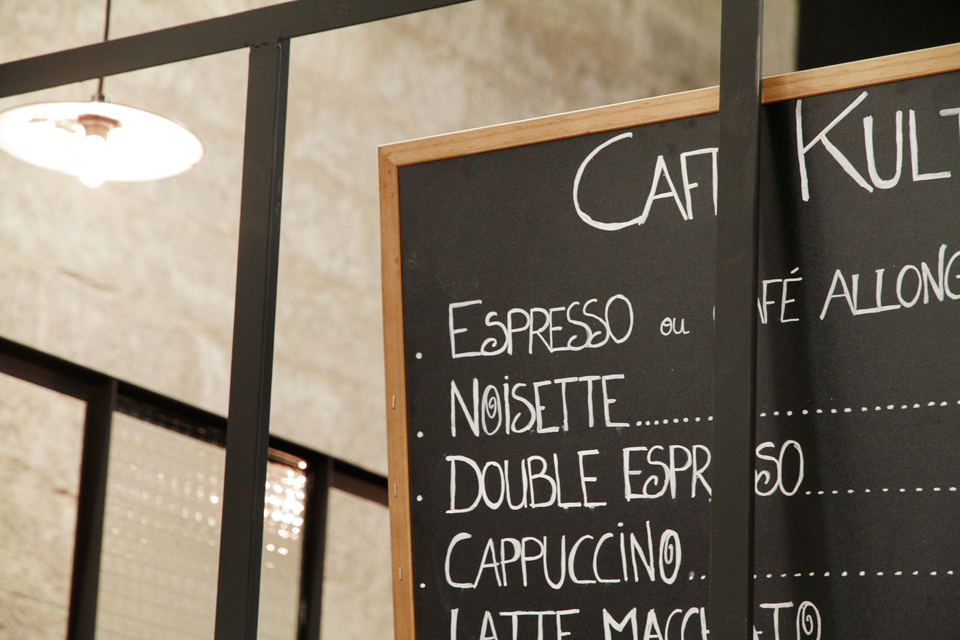 CAFÉ KULT
. ESPRESSO ou CAFÉ ALLONG
. NOISETTE..............................
. DOUBLE ESPRESSO..................
. CAPPUCCINO..........................
LATTE MACCHIATO